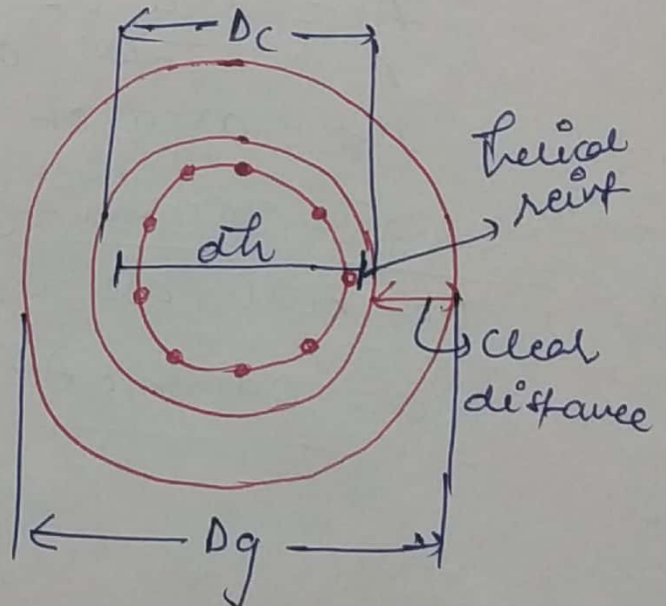 Dc
helical
reinf
dh
clear
distance
Dg